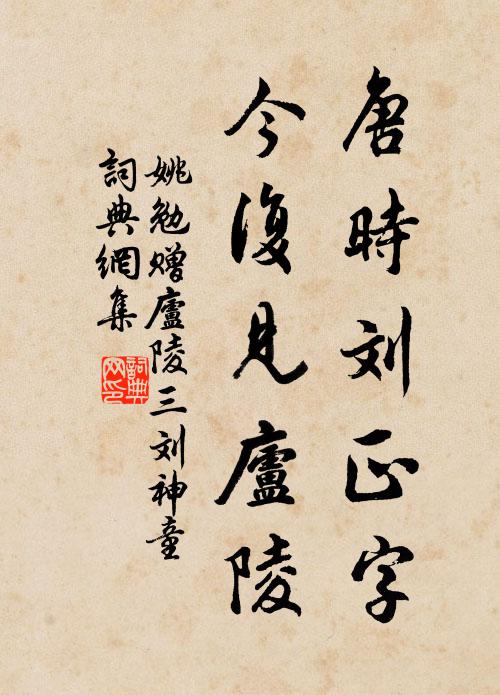 唐時刘正字
今復見廬陵
姚勉赠廬陵三刘神童
詞典網集
詞典
网印